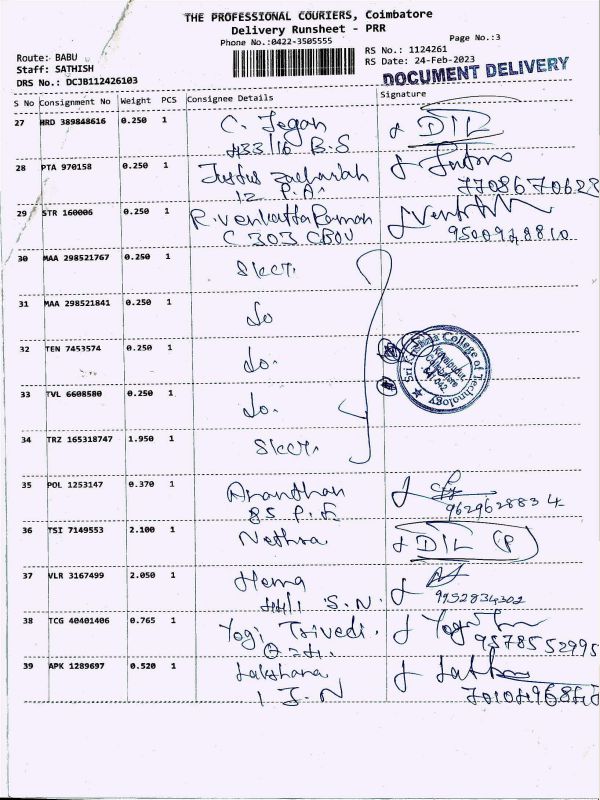 THE PROFESSIONAL COURIERS, Coimbatore
Delivery Runsheet - PRR
Phone No.:0422-3505555
Page No.:3
Route: BABU
RS No.: 1124261
Staff: SATHISH
RS Date: 24-Feb-2023
DRS No.: DCJB112426103
DOCUMENT DELIVERY
S No Consignment No Weight PCS Consignee Details Signature
27 HRD 389848616 0.250 1 C. Jegan DIL
433/16 B.S
28 PTA 970158 0.250 1 Justus Zachariah
12 P.A. 7708670628
29 STR 160006 0.250 1 R. Venkatta Raman
C 303 CBOU 9500928810
30 MAA 298521767 0.250 1 Skct.
31 MAA 298521841 0.250 1 do
32 TEN 7453574 0.250 1 do.
Sri Krishna College of Technology
Coimbatore
641 042
33 TVL 6608580 0.250 1 do.
34 TRZ 165318747 1.950 1 Skct.
35 POL 1253147 0.370 1 Ananthan
85 P.E 9629628834
36 TSI 7149553 2.100 1 Nethra DIL (P)
37 VLR 3167499 2.050 1 Hema
S.N. 9952834302
38 TCG 40401406 0.765 1 Yogi Trivedi.
9578552995
39 APK 1289697 0.520 1 Lakshana
1 J.N